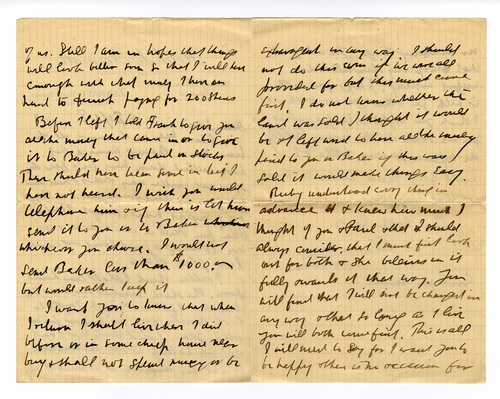 of us. Still I am in hopes that things
will look better soon so that I will have
enough with what money I have on
hand to finish paying for 200 shares
Before I left I told Frank to give you
all the money that came in or to give
it to Baker to be paid on stocks
There should have been some in but I
have not heard. I wish you would
telephone him & if there is let him
send it to you or to Baker
whichever you choose. I would not
send Baker less than $1000.00
but would rather keep it
I want you to know that when
I return I shall live as I did
before or in some cheap house near
by & shall not spend money or be
extravagant in any way. I should
not do this even if we were all
provided for but this must come
first. I do not know whether the
land was sold I thought it would
be & left word to have all the money
paid to you or Baker if this was
sold it would make things easy.
Ruby understood everything in
advance & knew how much I
thought of you & that I should
always consider, that I must first look
out for both & she believes in it
fully & wants it that way. You
will find that I will not be changed in
any way & that so long as I live
you will both come first. This is all
I will need to say for I want you to
be happy & there is no occasion for